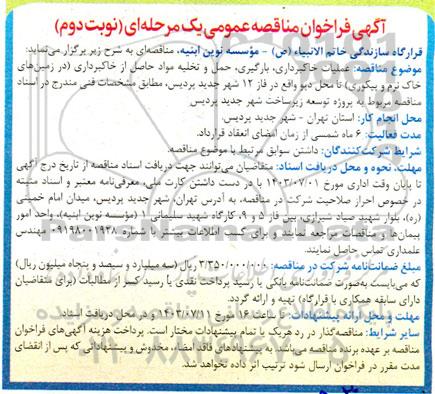 آگهی فراخوان مناقصه عمومی یک مرحله‌ای (نوبت دوم)
قرارگاه سازندگی خاتم الانبیاء (ص) - مؤسسه نوین ابنیه، مناقصه‌ای به شرح زیر برگزار می‌نماید:
موضوع مناقصه: عملیات خاکبرداری، بارگیری، حمل و تخلیه مواد حاصل از خاکبرداری (در زمین‌های
خاک نرم و پیکوری) تا محل دپو واقع در فاز ۱۲ شهر جدید پردیس، مطابق مشخصات فنی مندرج در اسناد
مناقصه مربوط به پروژه توسعه زیرساخت شهر جدید پردیس
محل انجام کار: استان تهران - شهر جدید پردیس.
مدت فعالیت: ۶ ماه شمسی از زمان امضای انعقاد قرارداد.
شرایط شرکت‌کنندگان: داشتن سوابق مرتبط با موضوع مناقصه.
مهلت، نحوه و محل دریافت اسناد: متقاضیان می‌توانند جهت دریافت اسناد مناقصه از تاریخ درج آگهی
تا پایان وقت اداری مورخ ۱۴۰۳/۰۷/۰۱ با در دست داشتن کارت ملی، معرفی‌نامه معتبر و اسناد مثبته
در خصوص احراز صلاحیت شرکت در مناقصه، به آدرس تهران، شهر جدید پردیس، میدان امام خمینی
(ره)، بلوار شهید صیاد شیرازی، بین فاز ۵ و ۹، کارگاه شهید سلیمانی ۱ (مؤسسه نوین ابنیه)، واحد امور
پیمان‌ها و مناقصات مراجعه نمایند و برای کسب اطلاعات بیشتر با شماره ۰۹۱۹۸۰۰۱۹۲۸ مهندس
علمداری تماس حاصل نمایند.
مبلغ ضمانت‌نامه شرکت در مناقصه: ۳/۳۵۰/۰۰۰/۰۰۰ ریال (سه میلیارد و سیصد و پنجاه میلیون ریال)
که می‌بایست به‌صورت ضمانت‌نامه بانکی یا رسید پرداخت نقدی یا رسید کسر از مطالبات (برای متقاضیان
دارای سابقه همکاری با قرارگاه) تهیه و ارائه گردد.
مهلت و محل ارائه پیشنهادات: تا ساعت ۱۶ مورخ ۱۴۰۳/۰۷/۱۱ و در محل دریافت اسناد.
سایر شرایط: مناقصه‌گذار در رد هریک یا تمام پیشنهادات مختار است. پرداخت هزینه آگهی‌های فراخوان
مناقصه بر عهده برنده مناقصه می‌باشد. به پیشنهادهای فاقد امضاء، مخدوش و پیشنهاداتی که پس از انقضای
مدت مقرر در فراخوان ارسال شود ترتیب اثر داده نخواهد شد.